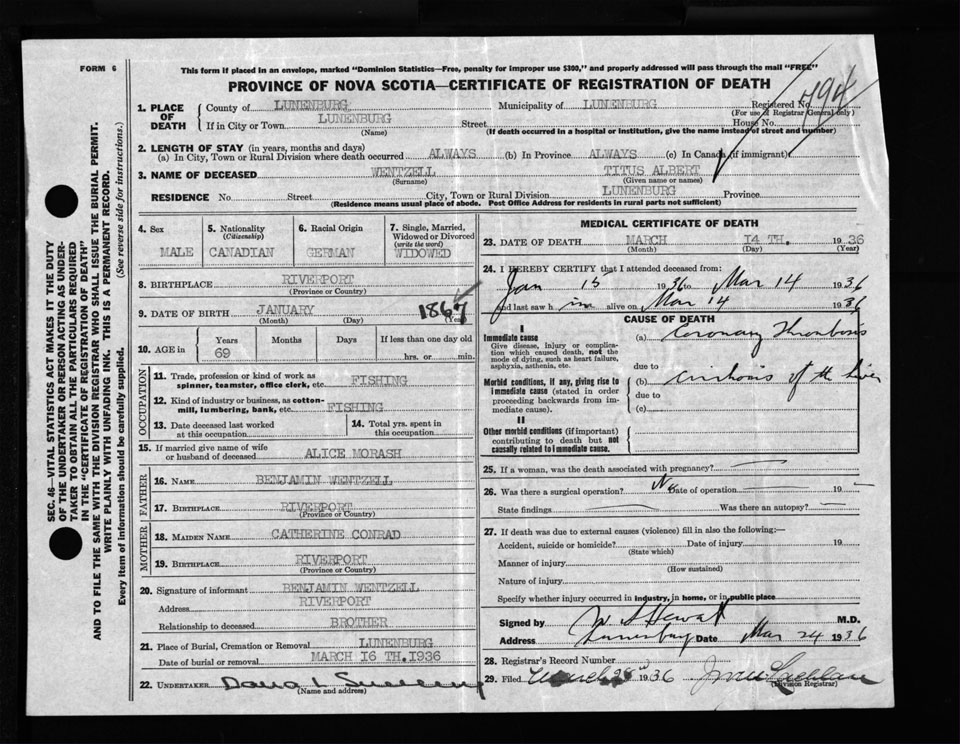 FORM 6
This form if placed in an envelope, marked "Dominion Statistics—Free, penalty for improper use $300," and properly addressed will pass through the mail "FREE"
PROVINCE OF NOVA SCOTIA—CERTIFICATE OF REGISTRATION OF DEATH
SEC. 46—VITAL STATISTICS ACT MAKES IT THE DUTY
OF THE UNDERTAKER OR PERSON ACTING AS UNDER-
TAKER TO OBTAIN ALL THE PARTICULARS REQUIRED
IN THE "CERTIFICATE OF REGISTRATION OF DEATH"
AND TO FILE THE SAME WITH THE DIVISION REGISTRAR WHO SHALL ISSUE THE BURIAL PERMIT.
WRITE PLAINLY WITH UNFADING INK. THIS IS A PERMANENT RECORD.
Every item of information should be carefully supplied. (See reverse side for instructions.)
1. PLACE OF DEATH
County of LUNENBURG Municipality of LUNENBURG Registered No. 494
(For use of Registrar General only)
If in City or Town LUNENBURG Street House No.
(Name) (If death occurred in a hospital or institution, give the name instead of street and number)
2. LENGTH OF STAY (in years, months and days)
(a) In City, Town or Rural Division where death occurred ALWAYS (b) In Province ALWAYS (c) In Canada (if immigrant)
3. NAME OF DECEASED WENTZELL TITUS ALBERT
(Surname) (Given name or names)
RESIDENCE No Street City, Town or Rural Division LUNENBURG Province
(Residence means usual place of abode. Post Office Address for residents in rural parts not sufficient)
4. Sex MALE
5. Nationality (Citizenship) CANADIAN
6. Racial Origin GERMAN
7. Single, Married, Widowed or Divorced (write the word) WIDOWED
8. BIRTHPLACE RIVERPORT
(Province or Country)
9. DATE OF BIRTH JANUARY 1867
(Month) (Day) (Year)
10. AGE in Years 69 Months Days If less than one day old
hrs. or min.
OCCUPATION
11. Trade, profession or kind of work as spinner, teamster, office clerk, etc. FISHING
12. Kind of industry or business, as cotton-mill, lumbering, bank, etc. FISHING
13. Date deceased last worked at this occupation
14. Total yrs. spent in this occupation
15. If married give name of wife or husband of deceased ALICE MORASH
FATHER
16. NAME BENJAMIN WENTZELL
17. BIRTHPLACE RIVERPORT
(Province or Country)
MOTHER
18. MAIDEN NAME CATHERINE CONRAD
19. BIRTHPLACE RIVERPORT
(Province or Country)
20. Signature of informant BENJAMIN WENTZELL
Address RIVERPORT
Relationship to deceased BROTHER
21. Place of Burial, Cremation or Removal LUNENBURG
Date of burial or removal MARCH 16 TH. 1936
22. UNDERTAKER
(Name and address)
MEDICAL CERTIFICATE OF DEATH
23. DATE OF DEATH MARCH 14 TH. 1936
(Month) (Day) (Year)
24. I HEREBY CERTIFY that I attended deceased from:
Jan 15 1936 to Mar 14 1936
and last saw him alive on Mar 14 1936
CAUSE OF DEATH
I
Immediate cause
Give disease, injury or complication which caused death, not the mode of dying, such as heart failure, asphyxia, asthenia, etc.
(a) Coronary Thrombosis
due to
Morbid conditions, if any, giving rise to immediate cause (stated in order proceeding backwards from immediate cause).
(b) cirrhosis of the liver
due to
(c)
II
Other morbid conditions (if important) contributing to death but not causally related to immediate cause.
25. If a woman, was the death associated with pregnancy?
26. Was there a surgical operation? No Date of operation 19
State findings Was there an autopsy?
27. If death was due to external causes (violence) fill in also the following:—
Accident, suicide or homicide? Date of injury 19
(State which)
Manner of injury
(How sustained)
Nature of injury
Specify whether injury occurred in industry, in home, or in public place
Signed by M.D.
Address Lunenburg Date Mar 24 1936
28. Registrar's Record Number
29. Filed March 1936
(Division Registrar)